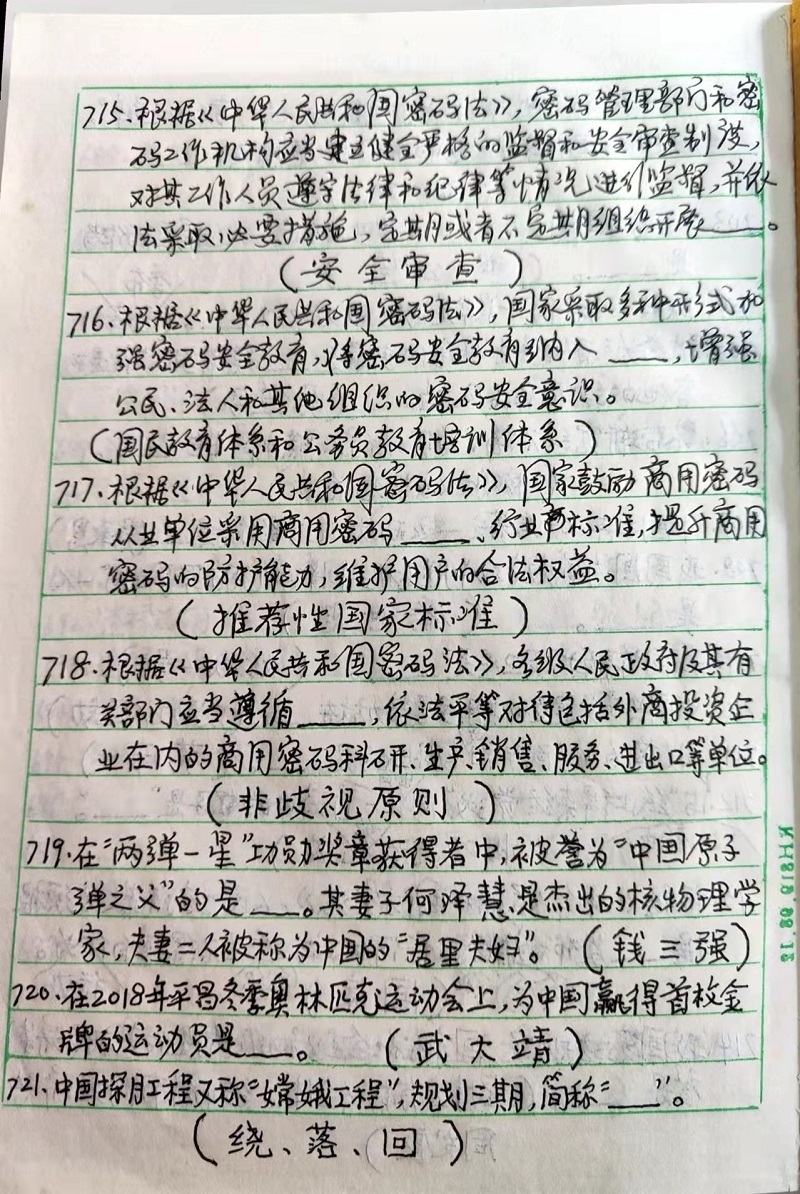 715.根据《中华人民共和国密码法》，密码管理部门和密
码工作机构应当建立健全严格的监督和安全审查制度，
对其工作人员遵守法律和纪律等情况进行监督，并依
法采取必要措施，定期或者不定期组织开展____。
（安全审查）
716.根据《中华人民共和国密码法》，国家采取多种形式加
强密码安全教育，将密码安全教育纳入____，增强
公民、法人和其他组织的密码安全意识。
（国民教育体系和公务员教育培训体系）
717.根据《中华人民共和国密码法》，国家鼓励商用密码
从业单位采用商用密码____、行业标准，提升商用
密码的防护能力，维护用户的合法权益。
（推荐性国家标准）
718.根据《中华人民共和国密码法》，各级人民政府及其有
关部门应当遵循____，依法平等对待包括外商投资企
业在内的商用密码科研、生产、销售、服务、进出口等单位。
（非歧视原则）
719.在“两弹一星”功勋奖章获得者中，被誉为“中国原子
弹之父”的是____。其妻子何泽慧是杰出的核物理学
家，夫妻二人被称为中国的“居里夫妇”。（钱三强）
720.在2018年平昌冬季奥林匹克运动会上，为中国赢得首枚金
牌的运动员是____。（武大靖）
721.中国探月工程又称“嫦娥工程”，规划三期，简称“____”。
（绕、落、回）